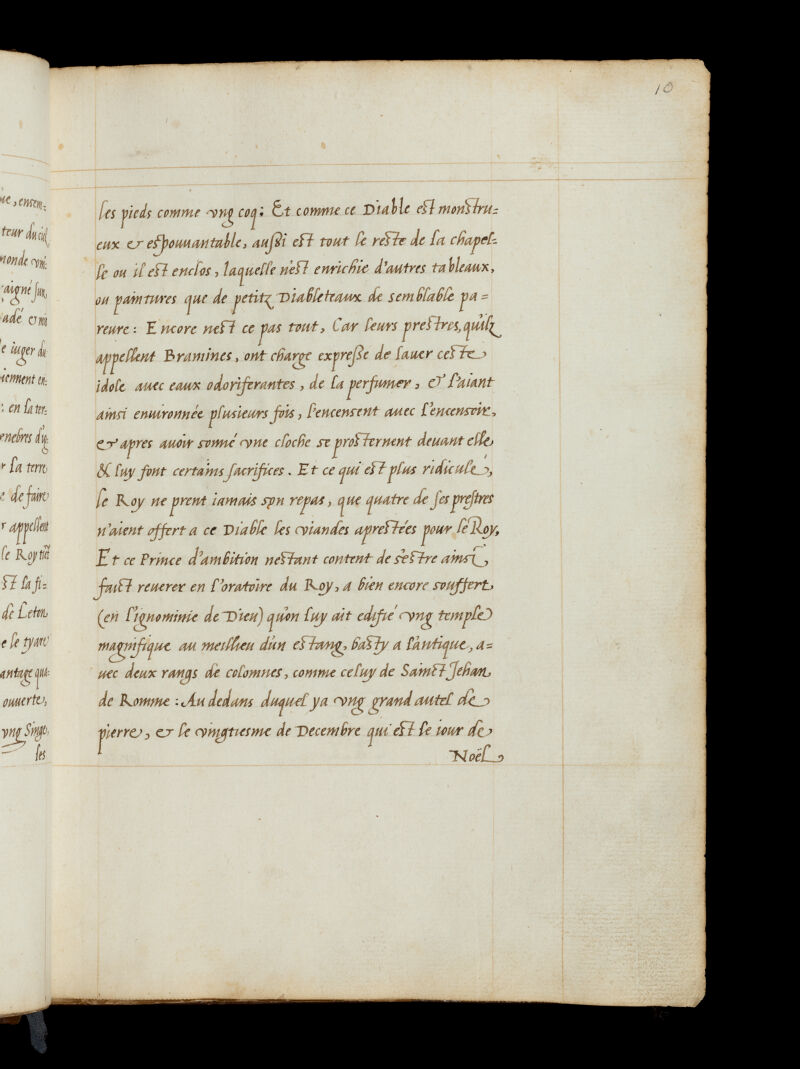 10
les pieds comme vng coq: Et comme ce Diable est monstru=
eux & espouuantable, aussi est tout le reste de la chapel=
le ou il est enclos, laquelle n'est enrichie d'autres tableaux,
ou paintures que de petitz Diableteaux de semblable pa=
reure: Encore nest ce pas tout, Car leurs prestres, qu'ilz
appellent Bramines, ont charge expresse de lauer ceste
idole auec eaux odoriferantes, de la perfumer, & l'aiant
ainsi enuironnée plusieurs fois, l'encensent auec l'encensoir,
& apres auoir sonné vne cloche se prosternent deuant elle
& luy font certains sacrifices. Et ce qui est plus ridicule,
le Roy ne prent iamais son repas, que quatre de ses prestres
n'aient offert a ce Diable les viandes aprestées pour le Roy,
Et ce Prince d'ambition nestant content de s'estre ainsi
faict reuerer en l'oratoire du Roy, a bien encore souffert
(en l'ignominie de Dieu) qu'on luy ait edifié vng temple
magnifique au meillieu d'un estang, basty a l'antique, a=
uec deux rangs de colomnes, comme celuy de Sainct Jehan
de Romme: Au dedans duquel ya vng grand autel de
pierre, & le vingtiesme de Decembre qui est le iour de
Noël
ue, ensem=
teur du ciel
monde vni=
adé & mi
e iuger du
iennent en=
: en la ter=
enebres d'y=
r la terre
e de faire
r appellent
le Roy
st la fi=
de Leton
e le tyare
antage qua=
ouuerte,
vng Singe,
les